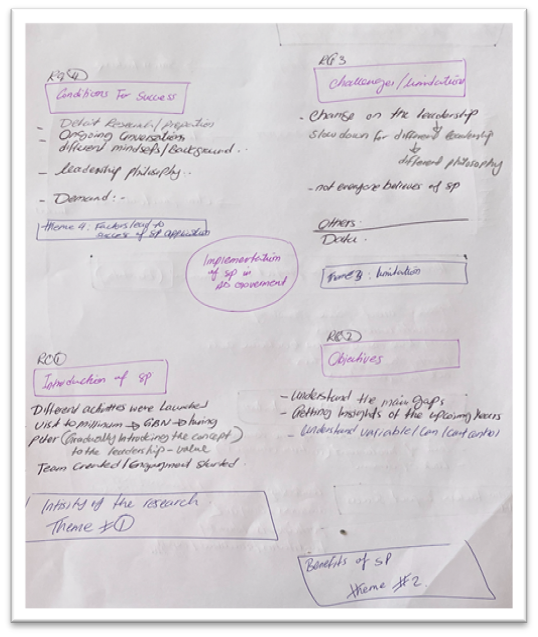 RQ 4
Conditions For Success
- Detail Research/
- Ongoing Conversation,
different mindsets/Background..
- leadership philosophy..
- Demand:-
Theme 4: Factors lead to
success of SP application
RQ 3
Challenges/limitations
- Change on the leadership
slowdown for different leadership
different philosophy
- not everyone believes of SP
Others
Data.
Theme 3: limitation
Implementation
of SP in
AD Government
RQ 1
Introduction of SP
Different activities were Launched
Visit to millinum → GBN → hiring
Peter (Gradually Introducing the concept)
to the leadership - value
Team created/Engagment started.
of the research
Theme #1
RQ 2
Objectives
- Understand the main gaps
- Getting Insights of the upcoming
- Understand variable/can/cant control
Benefits of SP
Theme #2.